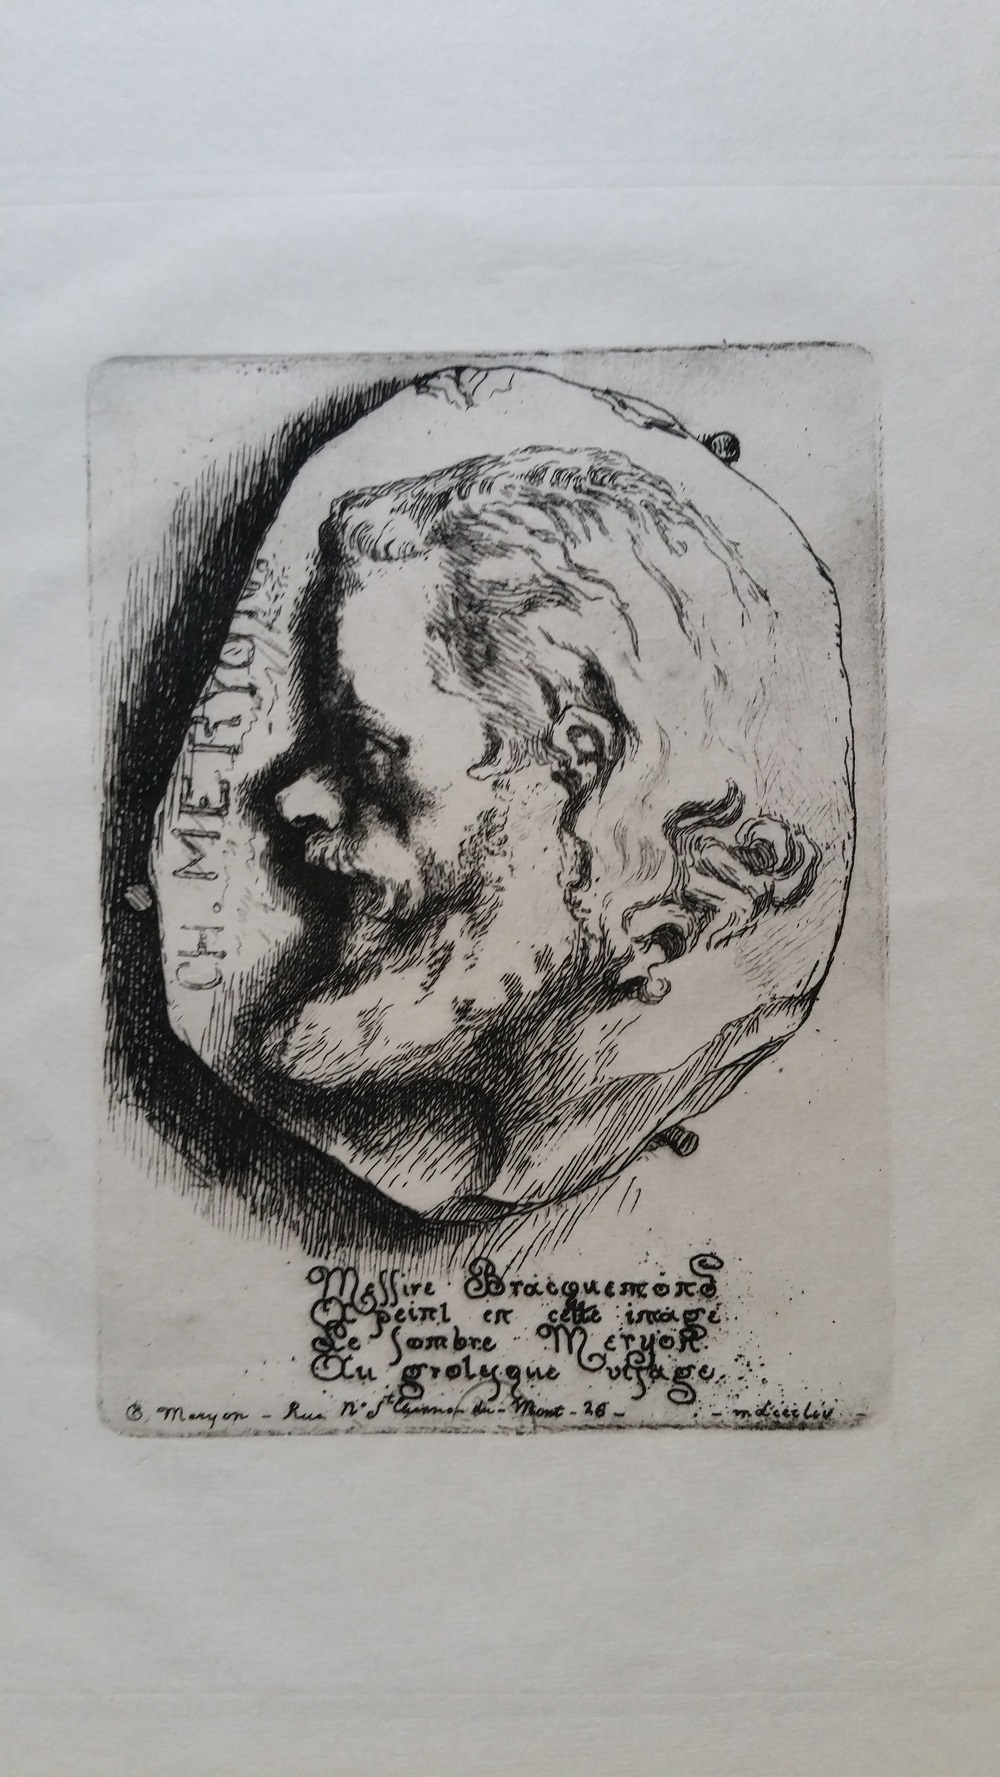 CH. MERYON.
Messire Bracquemond
A peint en cette image
Le sombre Meryon
Au grotesque visage.
C. Meryon - Rue Nº St Etienne-du-Mont - 26 - - mdcccliv -